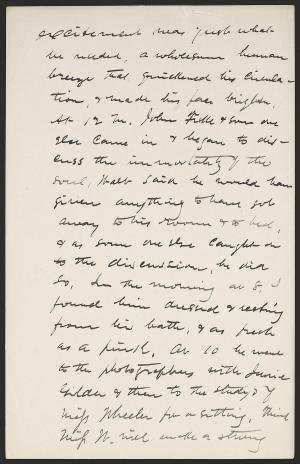 excitement was just what
he needed, a wholesome human
breeze that quickened his circula-
tion, & made his face brighter.
At 12 M. John Fiske & some one
else came in & began to dis-
cuss the immortality of the
soul, Walt said he would have
given anything to have got
away to his room & to bed,
& as some one else caught on
to the discussion, he did
so. In the morning at 8, I
found him dressed & resting
from his bath, & as fresh
as a pink. At 10 he went
to the photographers with Jennie
Gilder & then to the study of
Miss Wheeler for a sitting. Think
Miss W. will make a strong